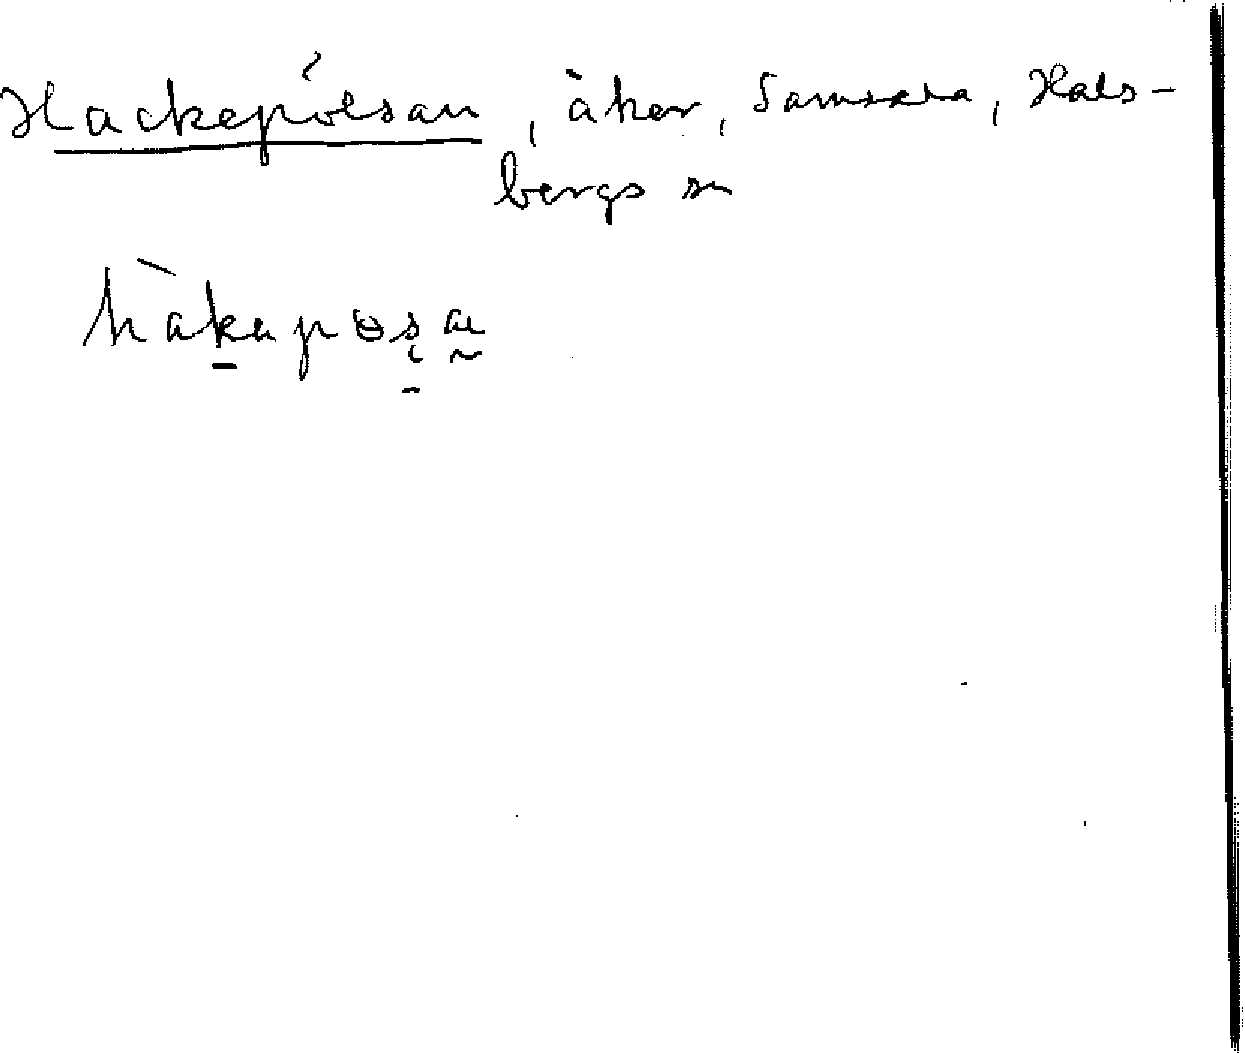 Hackepölsan, åker, Samsala, Hals-
bergs sn